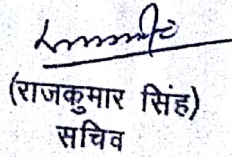 (राजकुमार सिंह)
सचिव